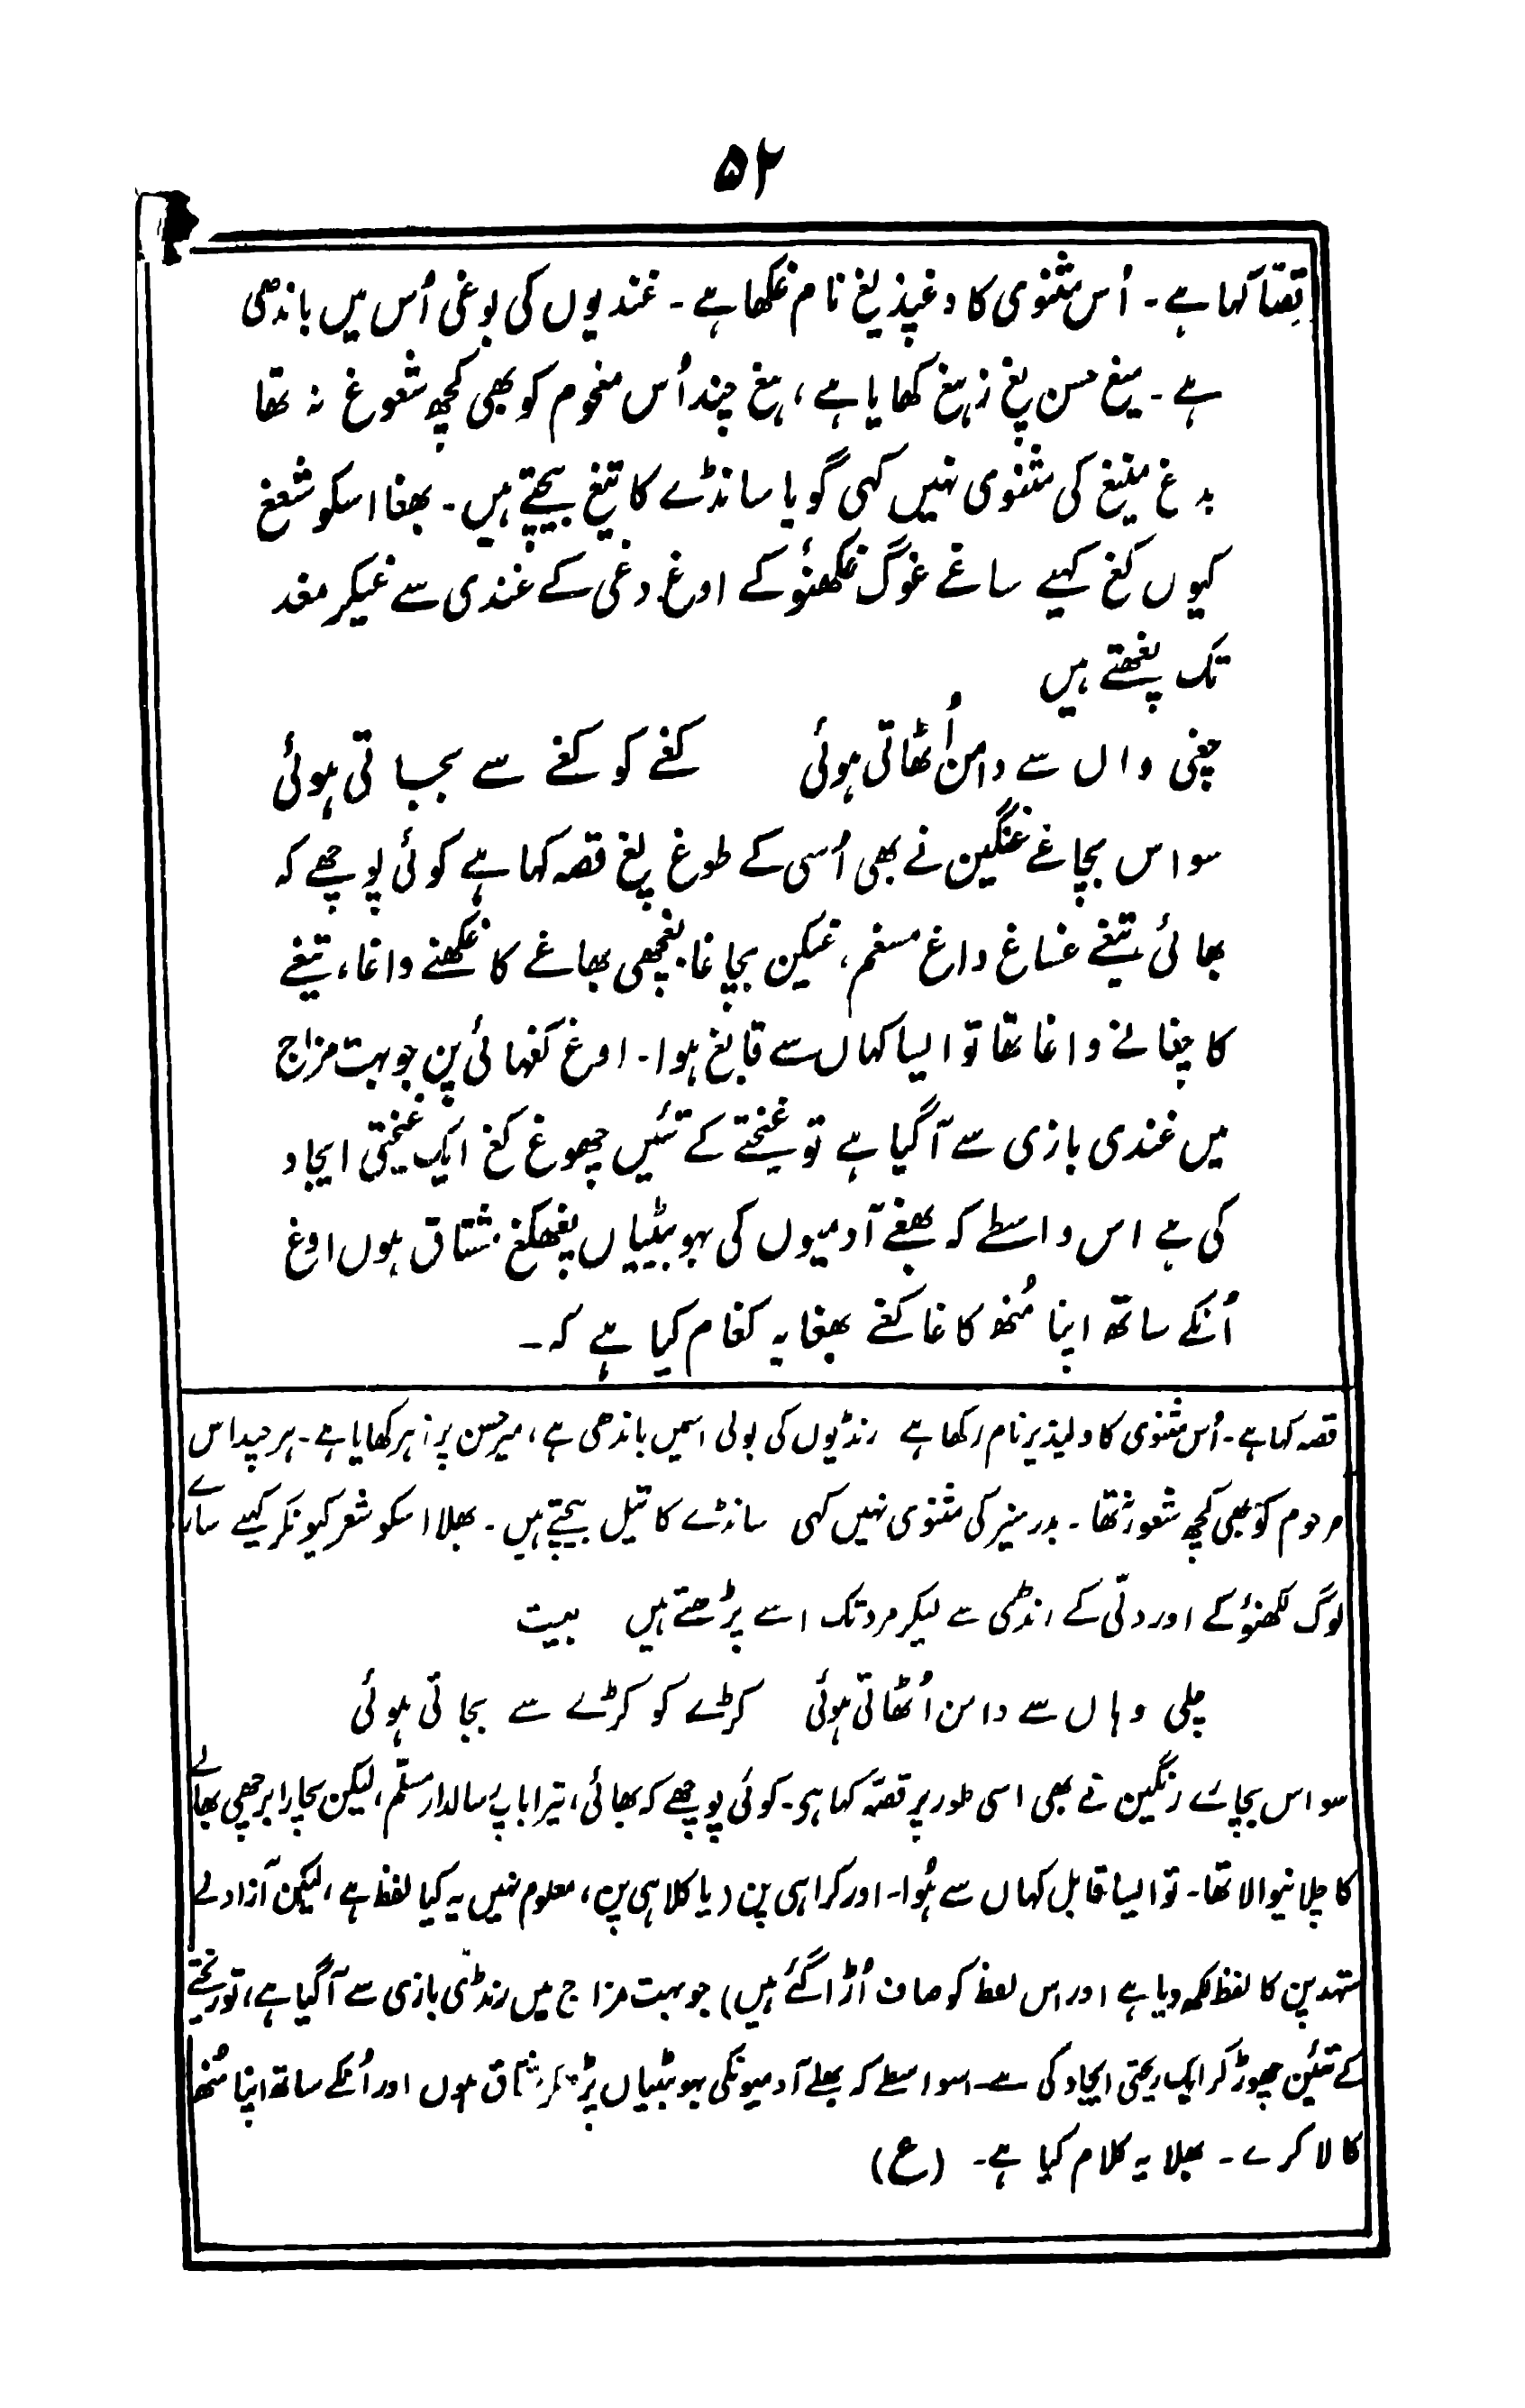 ۵۲
قِصّا کہا ہے۔ اُس مثنوی کا دغپذیغ نام غکھا ہے۔ غندیوں کی بوغی اُس میں باندھی
ہے۔ میغ حسن پغ زہغ کھایا ہے، ہغ چند اُس مغحوم کو بھی کچھ شعوغ نہ تھا
بدغ منیغ کی مثنوی نہیں کہی گویا سانڈے کا تیغ بیچتے ہیں۔ بھغا اسکو شعغ
کیوں کغ کہیے ساغے غوگ غکھنؤ کے اوغ دغی کے غندی سے غیکر مغد
تک پغھتے ہیں
چغی واں سے دامن اُٹھاتی ہوئی کغے کو کغے سے بجاتی ہوئی
سو اس بچاغے غنگین نے بھی اُسی کے طوغ پغ قصہ کہا ہے کوئی پوچھے کہ
بھائی تیغے غساغ داغ مسغم، غیکن بچاغا بغچھی بھاغے کا غکھنے واغا، تیغے
کا چغانے واغا تھا تو ایسا کہاں سے قابغ ہوا۔ اوغ کغہائی پن جو بہت مزاج
میں غندی بازی سے آگیا ہے تو غیختے کے تئیں چھوغ کغ ایک غیختی ایجاد
کی ہے اس واسطے کہ بھغے آدمیوں کی بہو بیٹیاں پغھکغ مشتاق ہوں اوغ
اُنکے ساتھ اپنا مُنھ کاغا کغے بھغا یہ کغام کیا ہے کہ۔
قصہ کہا ہے۔ اُس مثنوی کا دلپذیر نام رکھا ہے رنڈیوں کی بولی اسمیں باندھی ہے، میر حسن پر زہر کھایا ہے۔ ہر چند اس
مرحوم کو بھی کچھ شعور نہ تھا۔ بدر منیر کی مثنوی نہیں کہی سانڈے کا تیل بیچتے ہیں۔ بھلا اسکو شعر کیونکر کہیے سارے
لوگ لکھنؤ کے اور دلّی کے رنڈی سے لیکر مرد تک اسے پڑھتے ہیں بیت
چلی وہاں سے دامن اُٹھاتی ہوئی کڑے کو کڑے سے بجاتی ہوئی
سو اس بچارے رنگین نے بھی اسی طور پر قصّہ کہا ہی۔ کوئی پوچھے کہ بھائی، تیرا باپ رسالدار مسلّم، لیکن بچارا برچھی بھالے
کا چلانیوالا تھا۔ تو ایسا قابل کہاں سے ہُوا۔ اور کراہی پن (یا کلاہی پن، معلوم نہیں یہ کیا لفظ ہے، لیکن آزاد نے
شہدپن کا لفظ لکھ دیا ہے اور اس لفظ کو صاف اُڑا گئے ہیں) جو بہت مزاج میں رنڈی بازی سے آگیا ہے، تو ریختے
کے تئین چھوڑ کر ایک ریختی ایجاد کی ہے۔ اسواسطے کہ بھلے آدمیونکی بہو بیٹیاں پڑھکر مشتاق ہوں اور اُنکے ساتھ اپنا مُنھ
کالا کرے۔ بھلا یہ کلام کیا ہے۔ (ع)